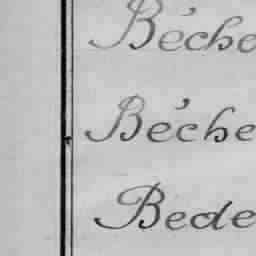 Béche
Béche
Bede